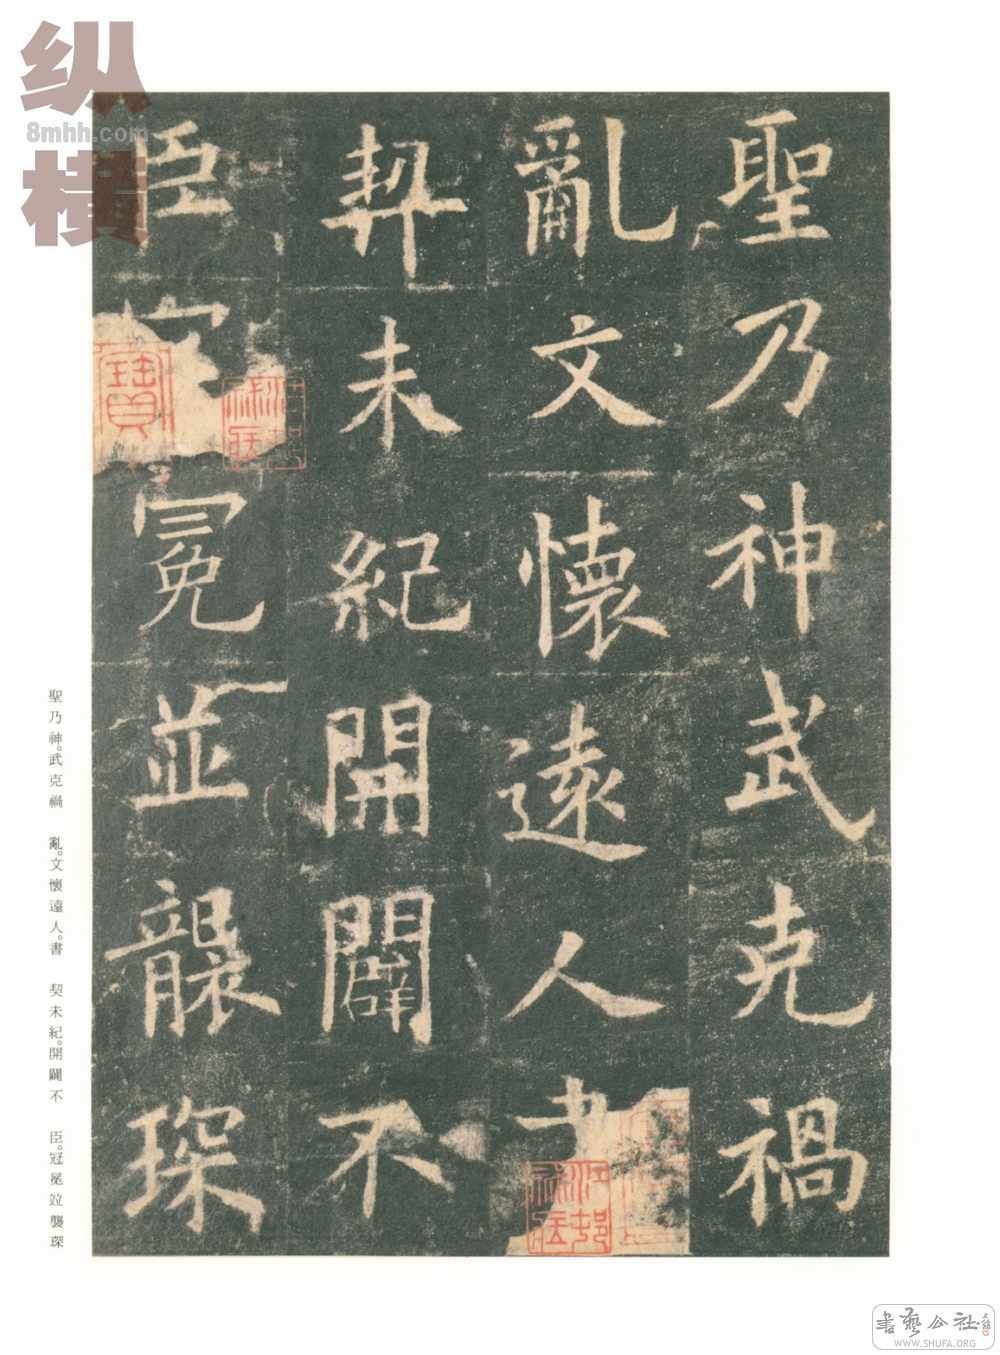 聖乃神武克禍
亂文懷遠人書
契未紀開闢不
臣冠冕並襲琛
聖乃神。武克禍　亂。文懷遠人。書　契未紀。開闢不　臣。冠冕竝襲琛
纵横
8mhh.com
書藝公社
WWW.SHUFA.ORG